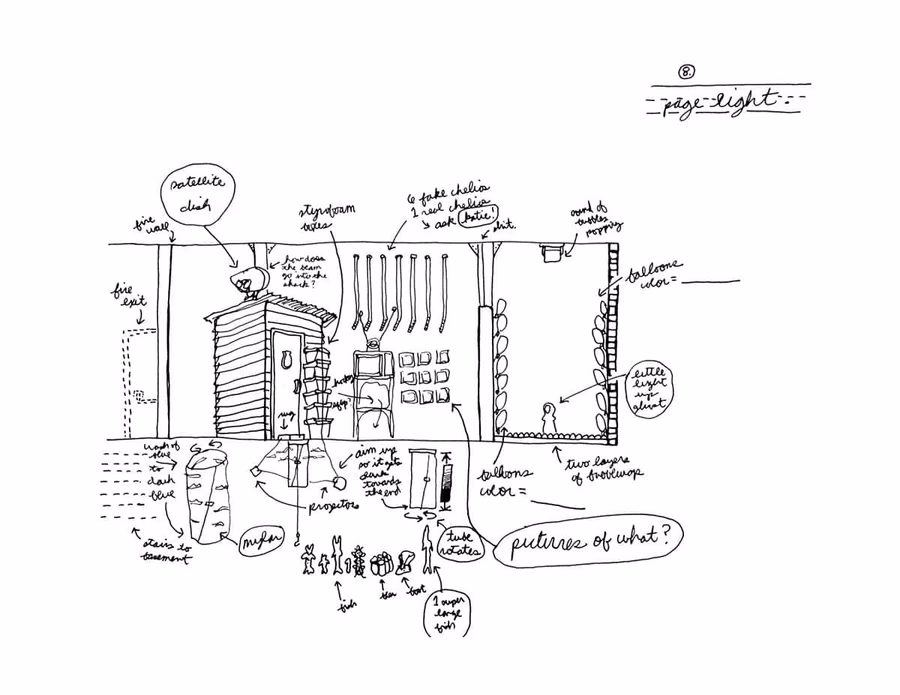 8.
page right:
satellite
dish
fire
wall
styrofoam
boxes
6 fake chelios
1 real chelios
ask katie!
slit.
sound of
bubbles
popping
how does
the team
go into the
shack?
fire
exit
balloons
color =
little
light
up
ghost
rug
wash of
blue
to
dark
blue
aim up
so it gets
dark
towards
the end
balloons
color =
two layers
of bubblewrap
projectors
stairs to
basement
mylar
tube
rotates
pictures of what?
fish
boot
1 super
large
fish